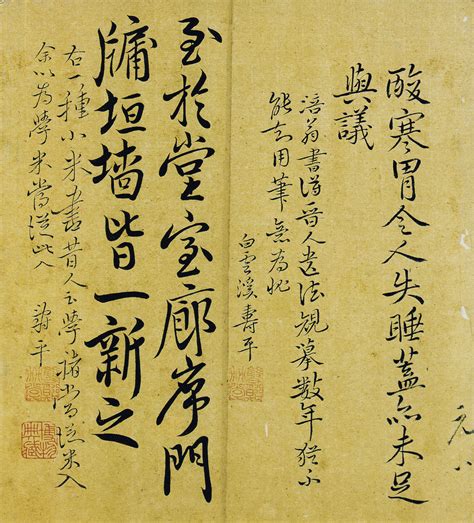 酸寒胃令人失睡蓋亦未足
與議
涪翁書得晉人遺法觀摹數年猶不
能用筆
白雲溪壽平
至於堂室廊序門
牖垣墻皆一新之
右一種小米書昔人云學褚當從米入
余以為學米當從此入
壽平